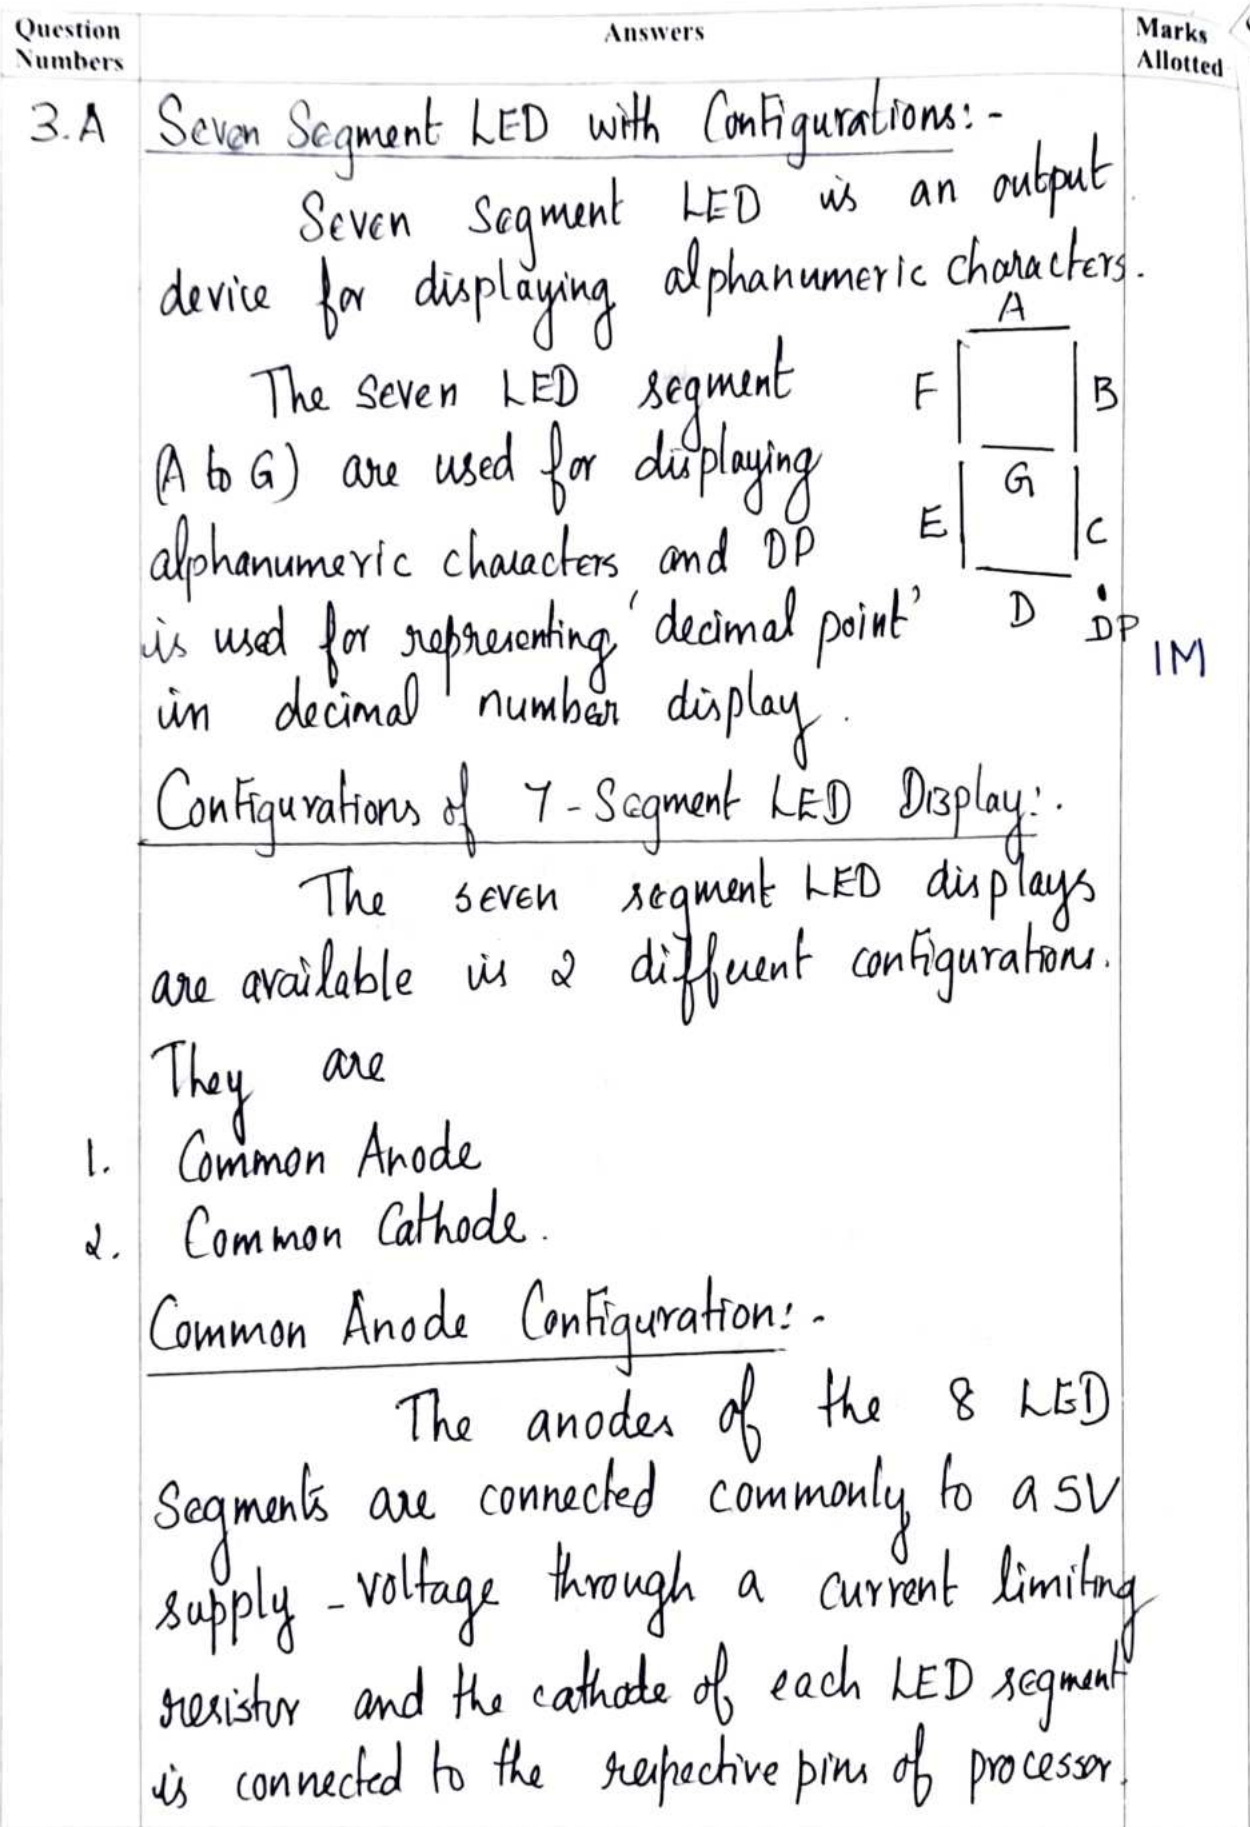 Question Numbers
Answers
Marks Allotted
3.A Seven Segment LED with Configurations:-
Seven Segment LED is an output
device for displaying alphanumeric characters.
A
The seven LED segment
F B
(A to G) are used for displaying
G
E C
alphanumeric characters and DP
D DP
is used for representing 'decimal point'
1M
in decimal number display.
Configurations of 7-Segment LED Display:.
The seven segment LED displays
are available is 2 different configurations.
They are
1. Common Anode
2. Common Cathode.
Common Anode Configuration:-
The anodes of the 8 LED
Segments are connected commonly to a 5V
supply-voltage through a current limiting
resistor and the cathode of each LED segment
is connected to the respective pins of processor.